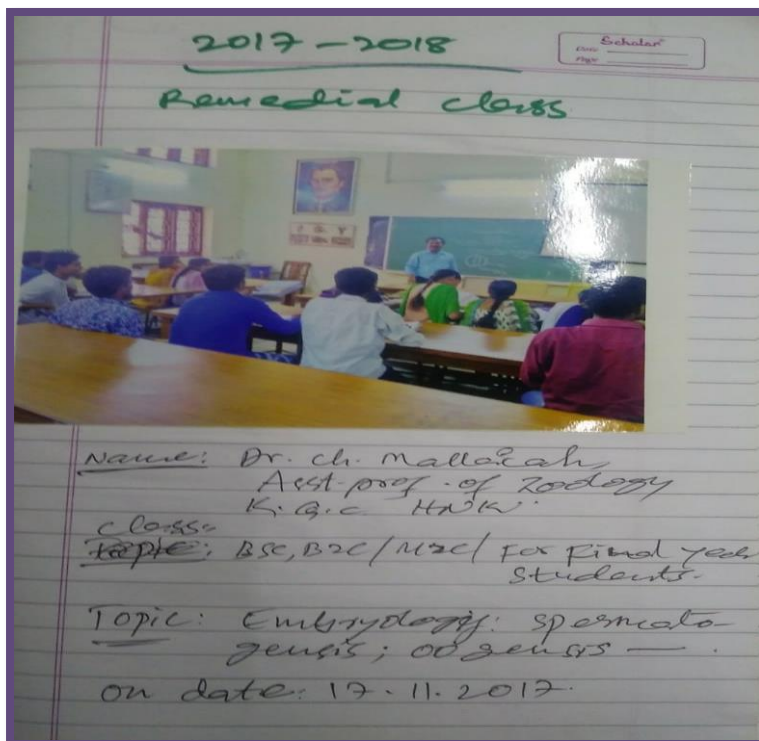 2017-2018
Scholar
Date
Page
Remedial class
Name: Dr. Ch. Mallaiah,
Asst. prof. of Zoology
K.G.C. HNK.
class:
Topic: BSC, BZC/MZC/ For Final year
Students.
Topic: Embryology: spermato-
gensis; oogensis —.
on date: 17.11.2017.